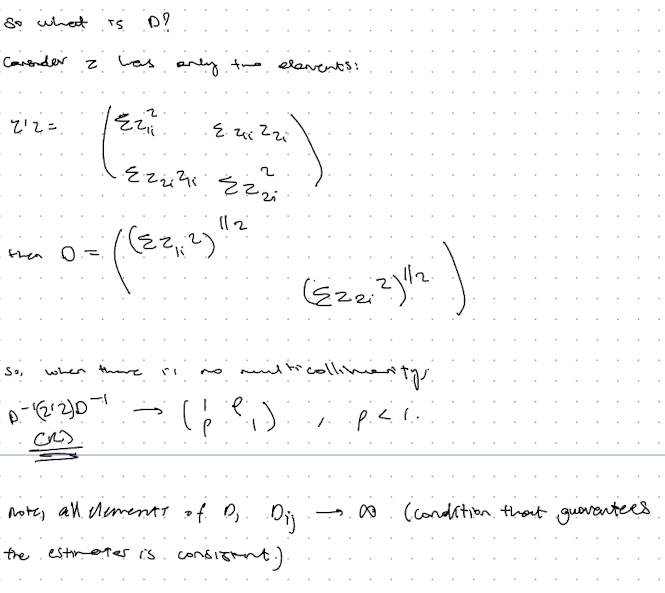 So what is D?
Consider z has only two elements:
Z'Z = ( Σz₁ᵢ² Σ z₁ᵢ z₂ᵢ
Σ z₂ᵢ z₁ᵢ Σ z₂ᵢ² )
then D = ( (Σ z₁ᵢ²)^1/2
(Σ z₂ᵢ²)^1/2 )
So, when there is no multicollinearity,
D⁻¹(Z'Z)D⁻¹ → ( 1 ρ
ρ 1 ) , ρ < 1.
Note, all elements of D, Dᵢⱼ → ∞ (condition that guarantees
the estimator is consistent.)